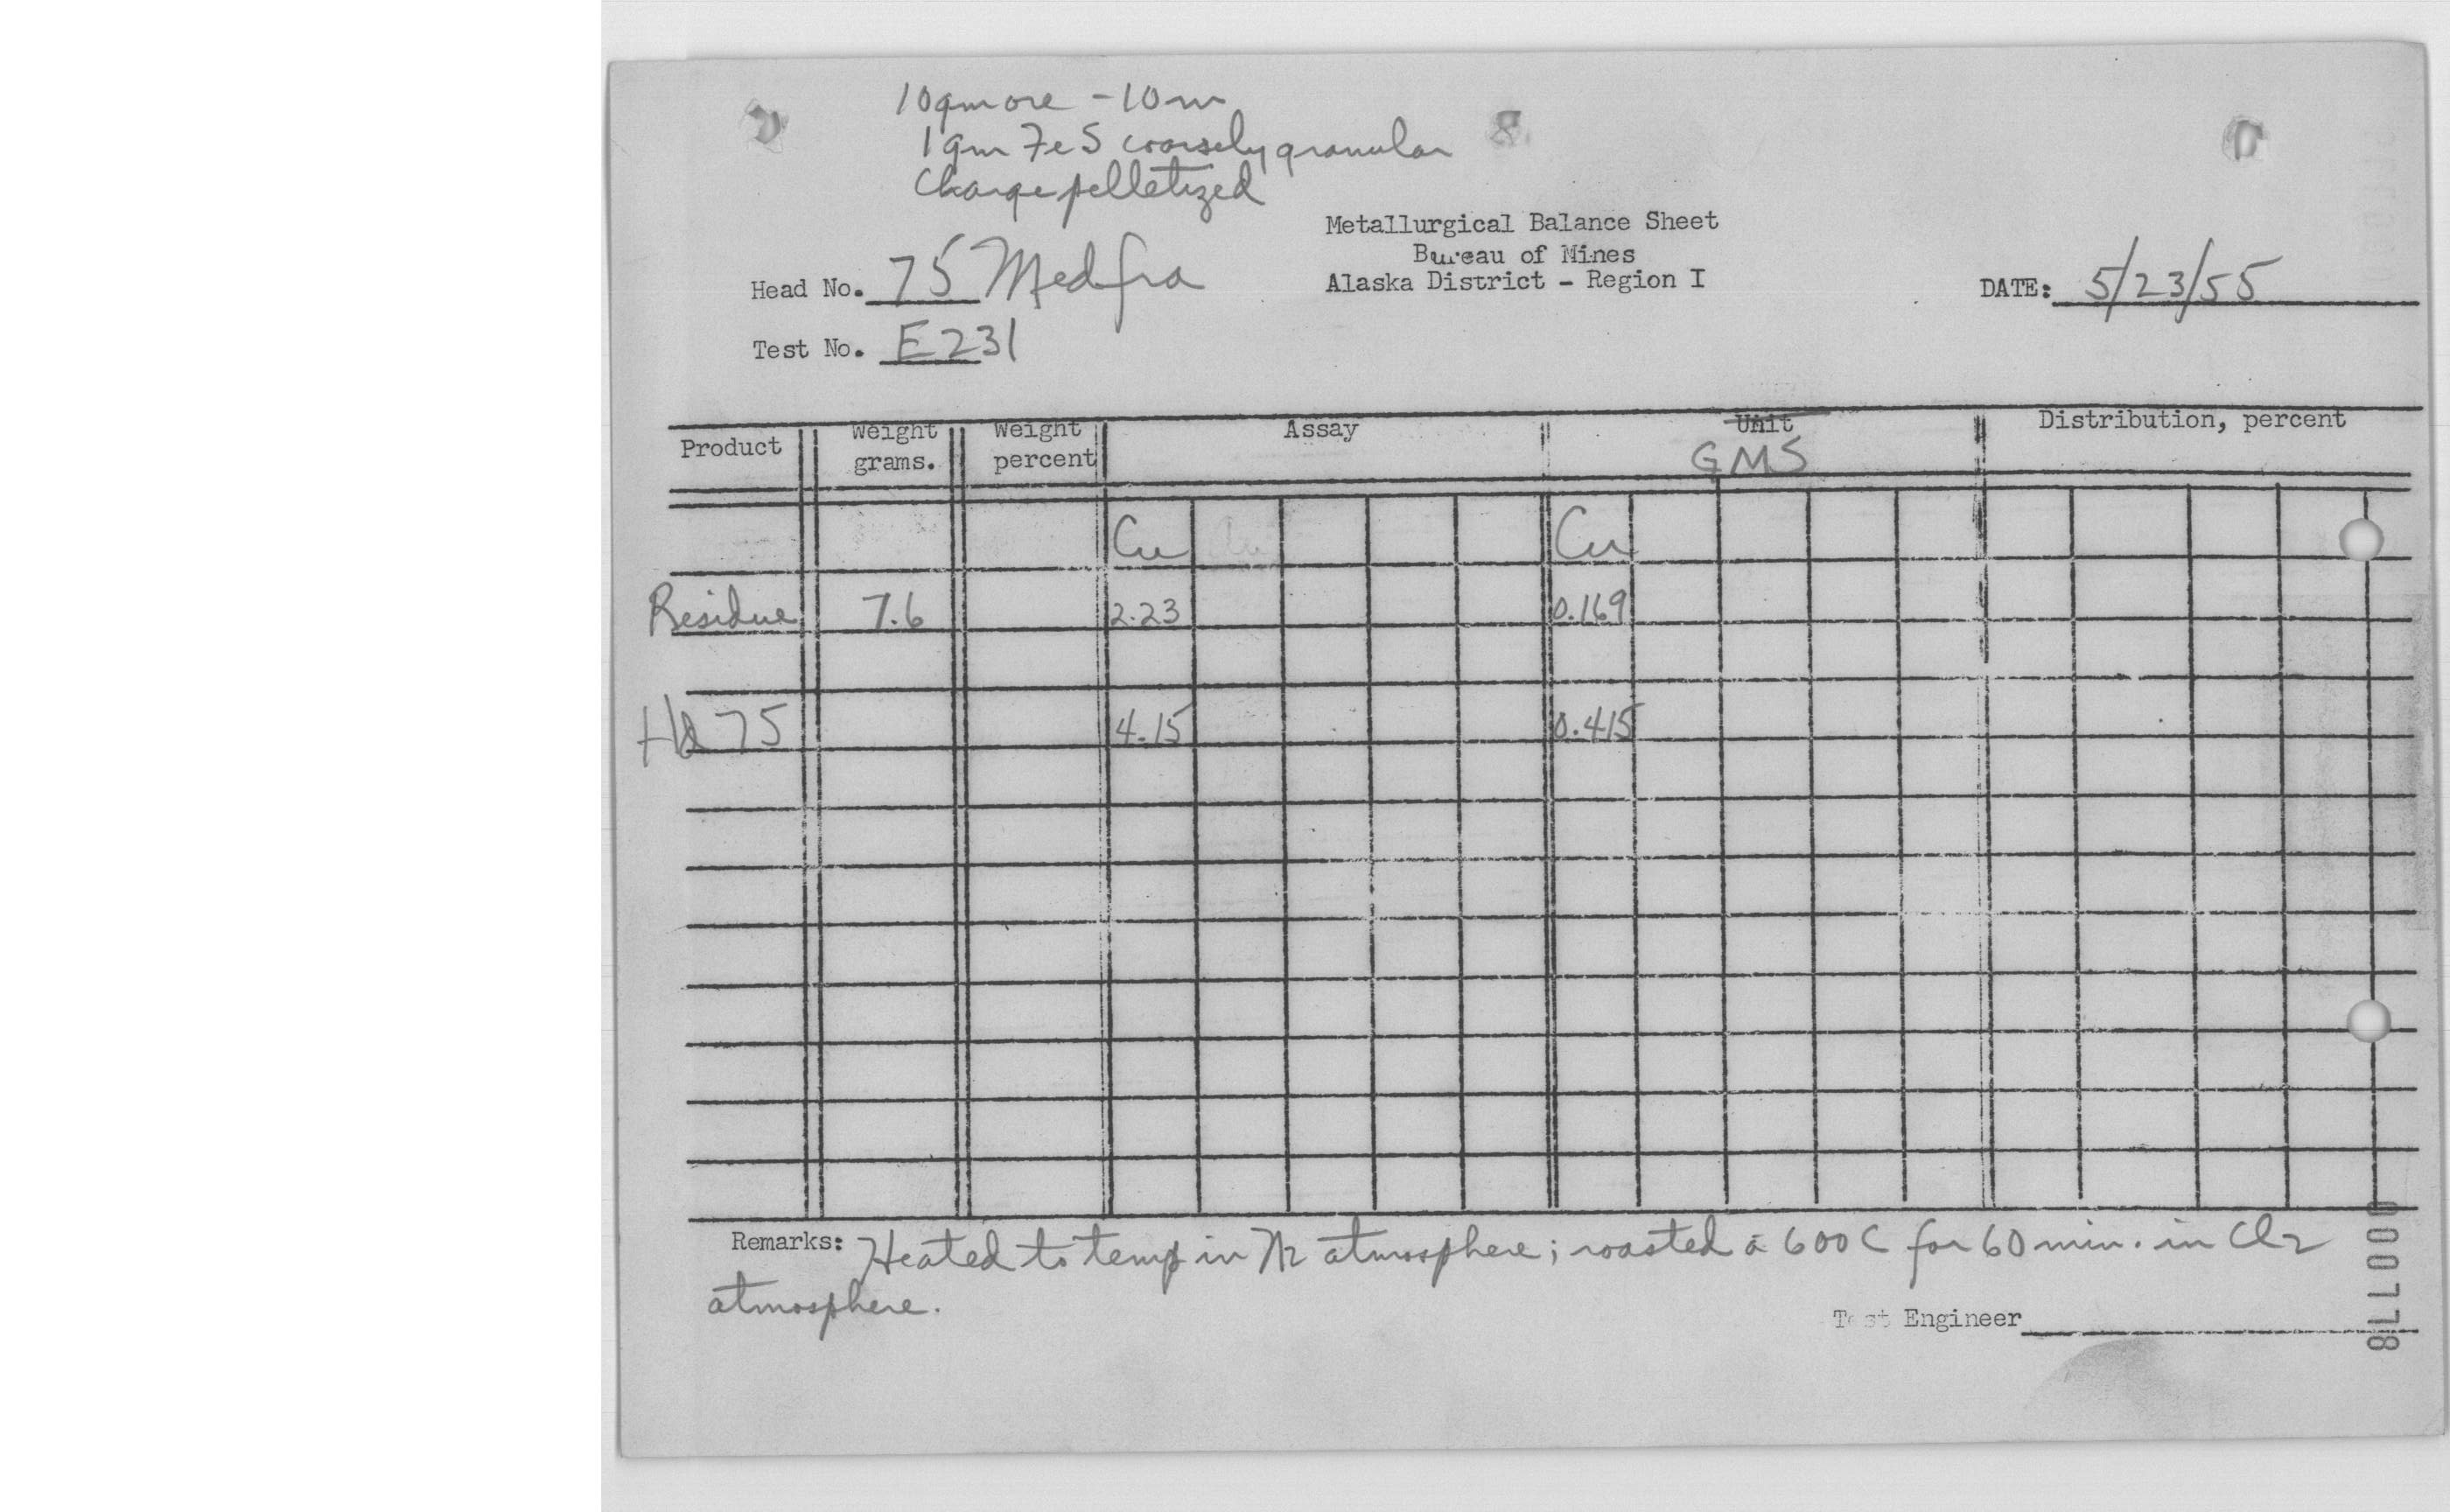 10gm ore -10m
1gm FeS coarsely granular
Charge pelletized
Metallurgical Balance Sheet
Bureau of Mines
Alaska District - Region I
Head No. 75 Medfra
DATE: 5/23/55
Test No. E231
Product Weight grams. Weight percent Assay Unit GMS Distribution, percent
Cu Cu
Residue 7.6 2.23 0.169
Hd 75 4.15 0.415
Remarks: Heated to temp in N2 atmosphere; roasted a 600 C for 60 min. in Cl2
atmosphere.
Test Engineer
000778